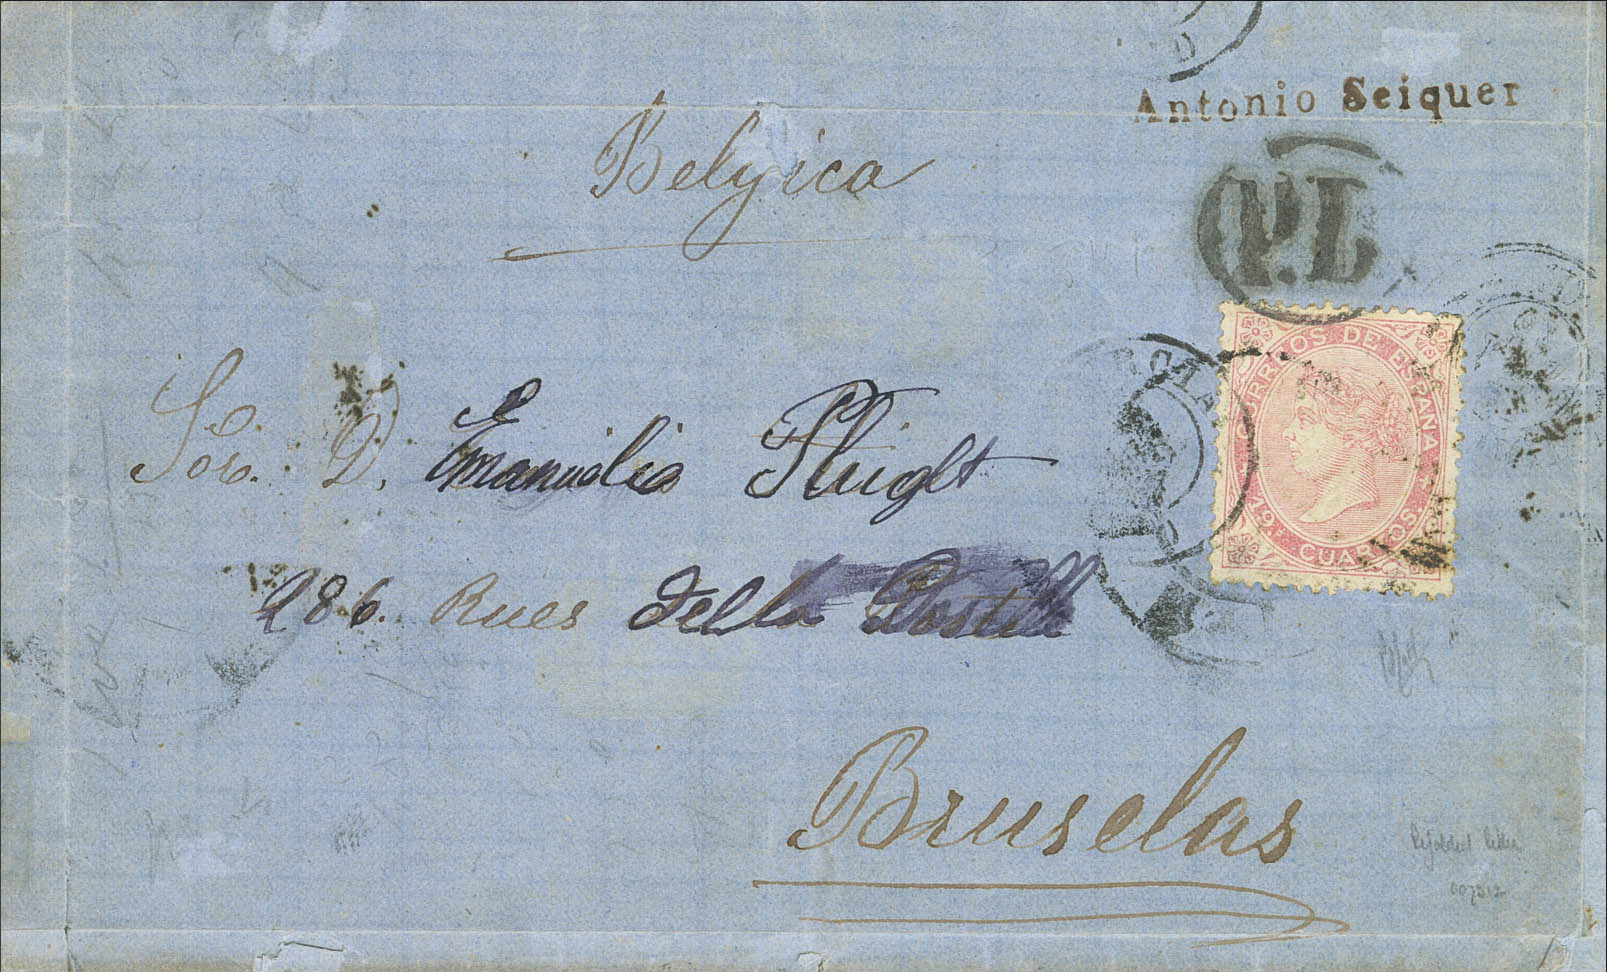 Antonio Seiquer
Belgica
P.L
CORREOS DE ESPAÑA
19 CUARTOS
Sor. D. Emanuelis
286. Rues della
Bruselas
Refolded letter